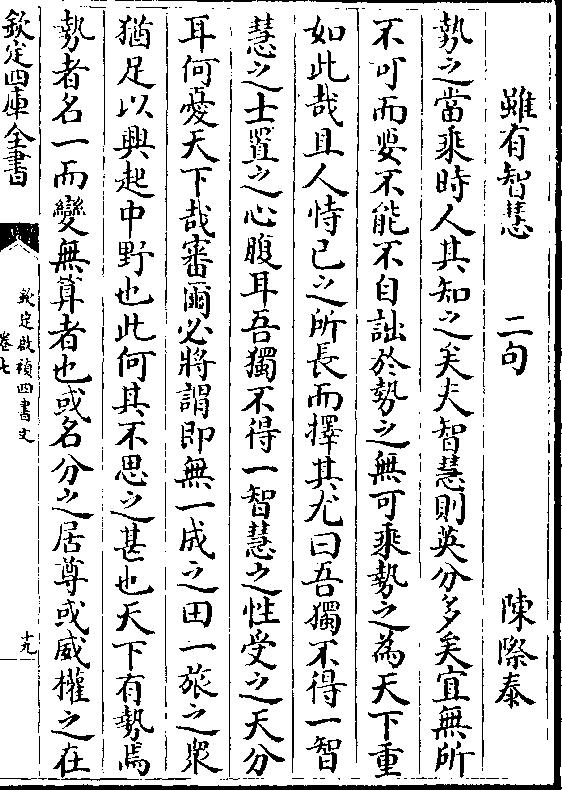 雖有智慧　二句　陳際泰
勢之當乘時人其知之矣夫智慧則英分多矣宜無所
不可而要不能不自詘於勢之無可乘勢之為天下重
如此哉且人恃已之所長而擇其尤曰吾獨不得一智
慧之士置之心腹耳吾獨不得一智慧之性受之天分
耳何憂天下哉審爾必將謂即無一成之田一旅之衆
猶足以興起中野也此何其不思之甚也天下有勢焉
勢者名一而變無算者也或名分之居尊或威權之在
欽定四庫全書
欽定啟禎四書文
卷七
十九